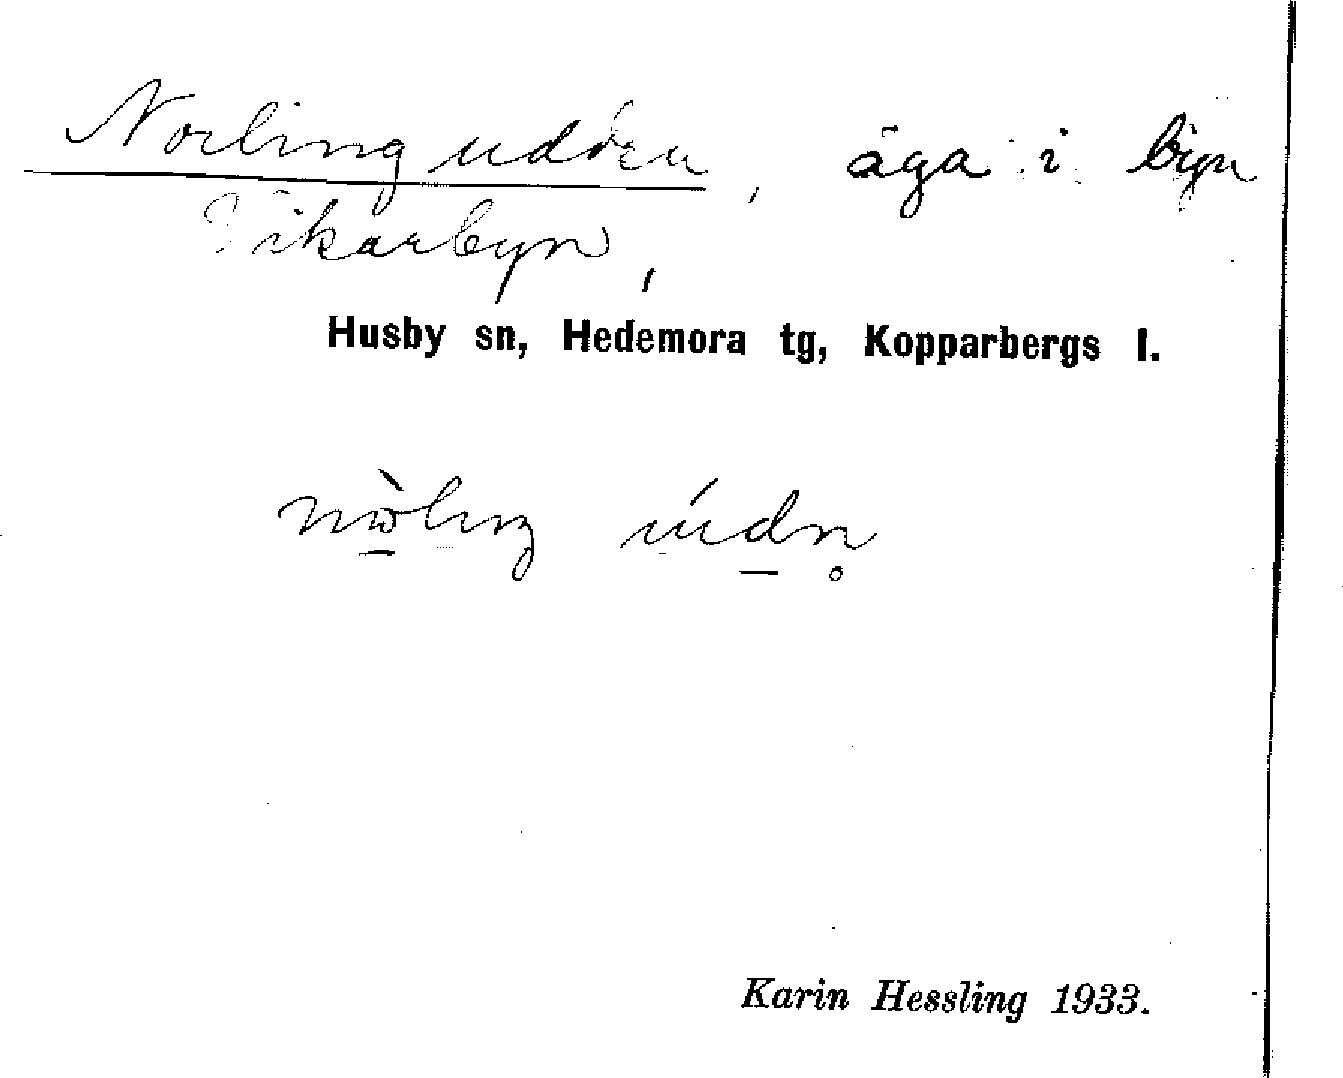 Norlingudden, äga i byn
Vikarbyn,
Husby sn, Hedemora tg, Kopparbergs l.
Karin Hessling 1933.